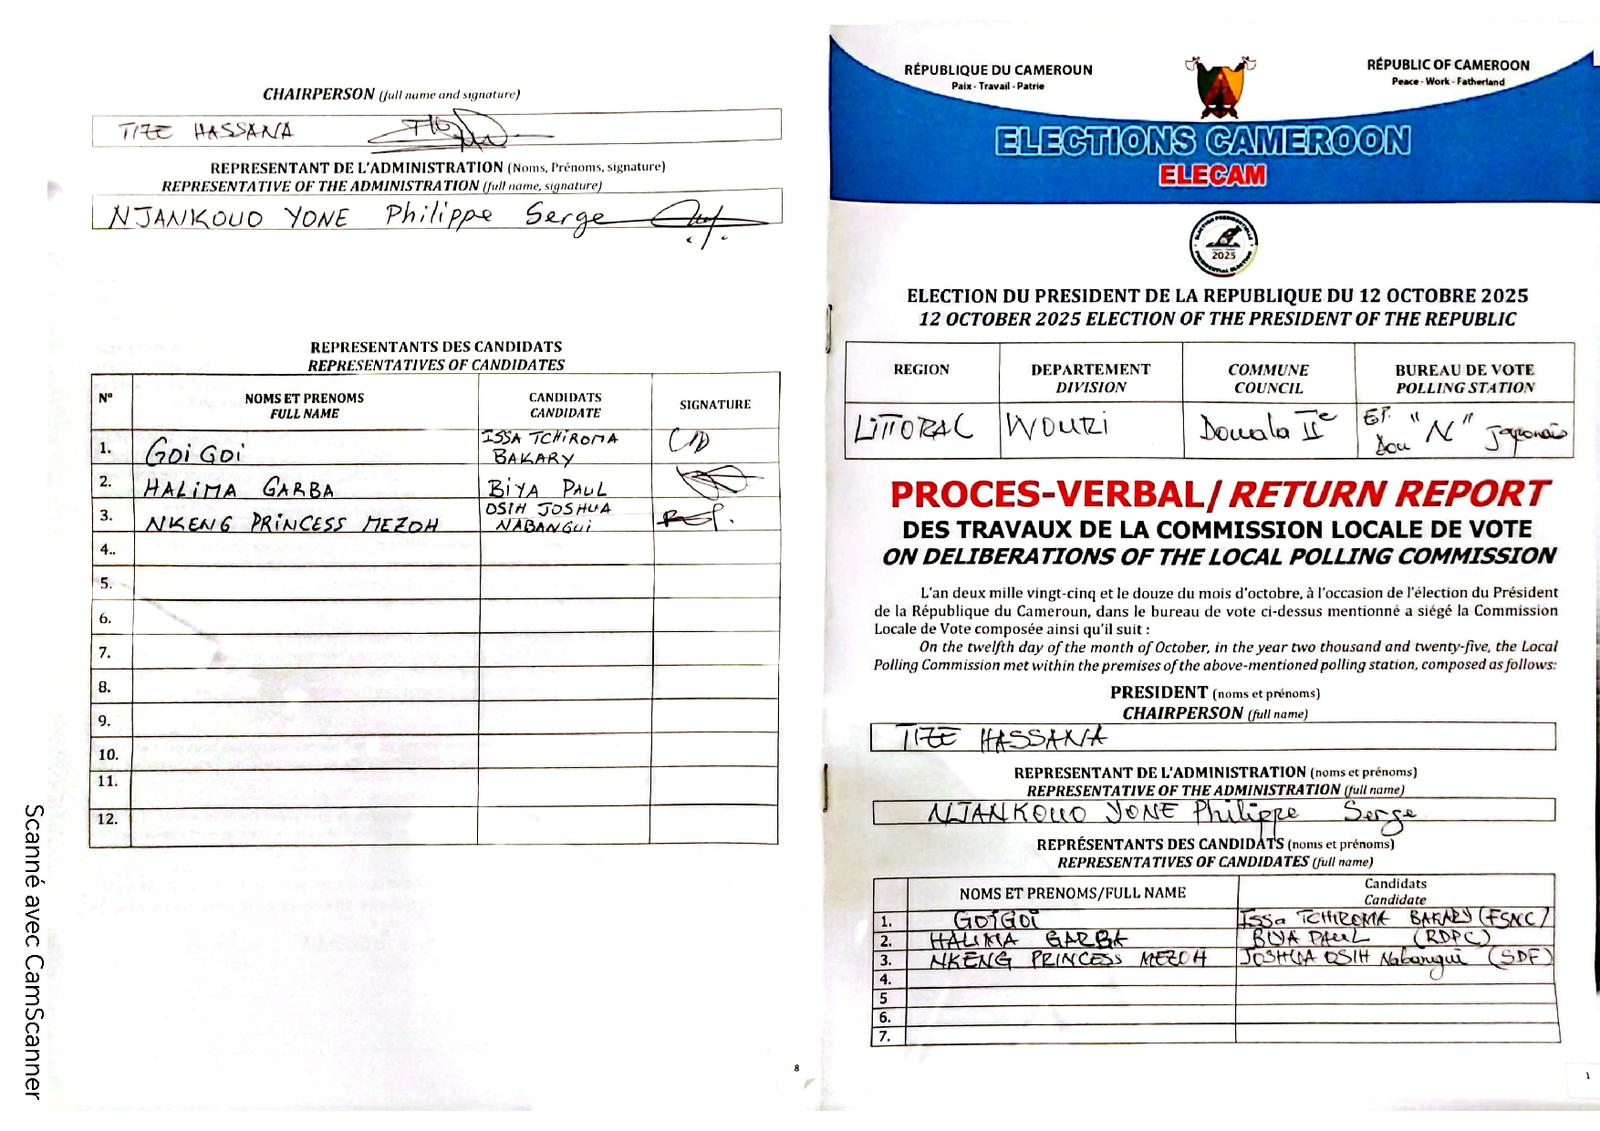 CHAIRPERSON (full name and signature)
TIZE HASSANA
REPRESENTANT DE L'ADMINISTRATION (Noms, Prénoms, signature)
REPRESENTATIVE OF THE ADMINISTRATION (full name, signature)
NJANKOUO YONE Philippe Serge
REPRESENTANTS DES CANDIDATS
REPRESENTATIVES OF CANDIDATES
N° NOMS ET PRENOMS FULL NAME CANDIDATS CANDIDATE SIGNATURE
1. GOIGOI ISSA TCHIROMA BAKARY
2. HALIMA GARBA BIYA PAUL
3. NKENG PRINCESS MEZOH OSIH JOSHUA NABANGUI
4..
5.
6.
7.
8.
9.
10.
11.
12.
8
Scanné avec CamScanner
RÉPUBLIQUE DU CAMEROUN
Paix - Travail - Patrie
RÉPUBLIC OF CAMEROON
Peace - Work - Fatherland
ELECTIONS CAMEROON
ELECAM
2025
ELECTION DU PRESIDENT DE LA REPUBLIQUE DU 12 OCTOBRE 2025
12 OCTOBER 2025 ELECTION OF THE PRESIDENT OF THE REPUBLIC
REGION DEPARTEMENT DIVISION COMMUNE COUNCIL BUREAU DE VOTE POLLING STATION
LITTORAL WOURI Douala IIe EP. "N" Japonais
PROCES-VERBAL/ RETURN REPORT
DES TRAVAUX DE LA COMMISSION LOCALE DE VOTE
ON DELIBERATIONS OF THE LOCAL POLLING COMMISSION
L'an deux mille vingt-cinq et le douze du mois d'octobre, à l'occasion de l'élection du Président
de la République du Cameroun, dans le bureau de vote ci-dessus mentionné a siégé la Commission
Locale de Vote composée ainsi qu'il suit :
On the twelfth day of the month of October, in the year two thousand and twenty-five, the Local
Polling Commission met within the premises of the above-mentioned polling station, composed as follows:
PRESIDENT (noms et prénoms)
CHAIRPERSON (full name)
TIZE HASSANA
REPRESENTANT DE L'ADMINISTRATION (noms et prénoms)
REPRESENTATIVE OF THE ADMINISTRATION (full name)
NJANKOUO YONE Philippe Serge
REPRÉSENTANTS DES CANDIDATS (noms et prénoms)
REPRESENTATIVES OF CANDIDATES (full name)
NOMS ET PRENOMS/FULL NAME Candidats Candidate
1. GOIGOI Issa TCHIROMA BAKARY (FSNC)
2. HALIMA GARBA BIYA PAUL (RDPC)
3. NKENG PRINCESS MEZOH JOSHUA OSIH Nabangui (SDF)
4.
5
6.
7.
1